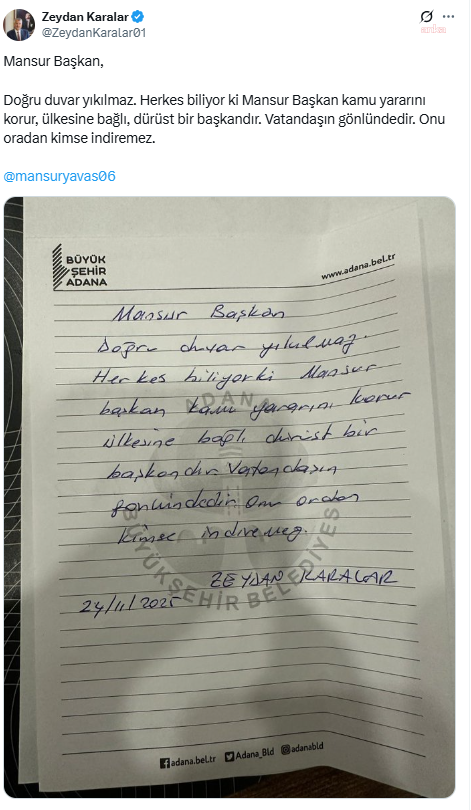 Zeydan Karalar
@ZeydanKaralar01
anka
Mansur Başkan,
Doğru duvar yıkılmaz. Herkes biliyor ki Mansur Başkan kamu yararını
korur, ülkesine bağlı, dürüst bir başkandır. Vatandaşın gönlündedir. Onu
oradan kimse indiremez.
@mansuryavas06
BÜYÜK
ŞEHİR
ADANA
www.adana.bel.tr
Mansur Başkan
Doğru duvar yıkılmaz.
Herkes biliyorki Mansur
başkan kamu yararını korur
ülkesine bağlı dürüst bir
başkandır Vatandaşın
gönlündedir onu oradan
kimse indiremez.
ZEYDAN KARALAR
24/11/2025
ADANA
BÜYÜKŞEHİR BELEDİYESİ
adana.bel.tr Adana_Bld adanabld